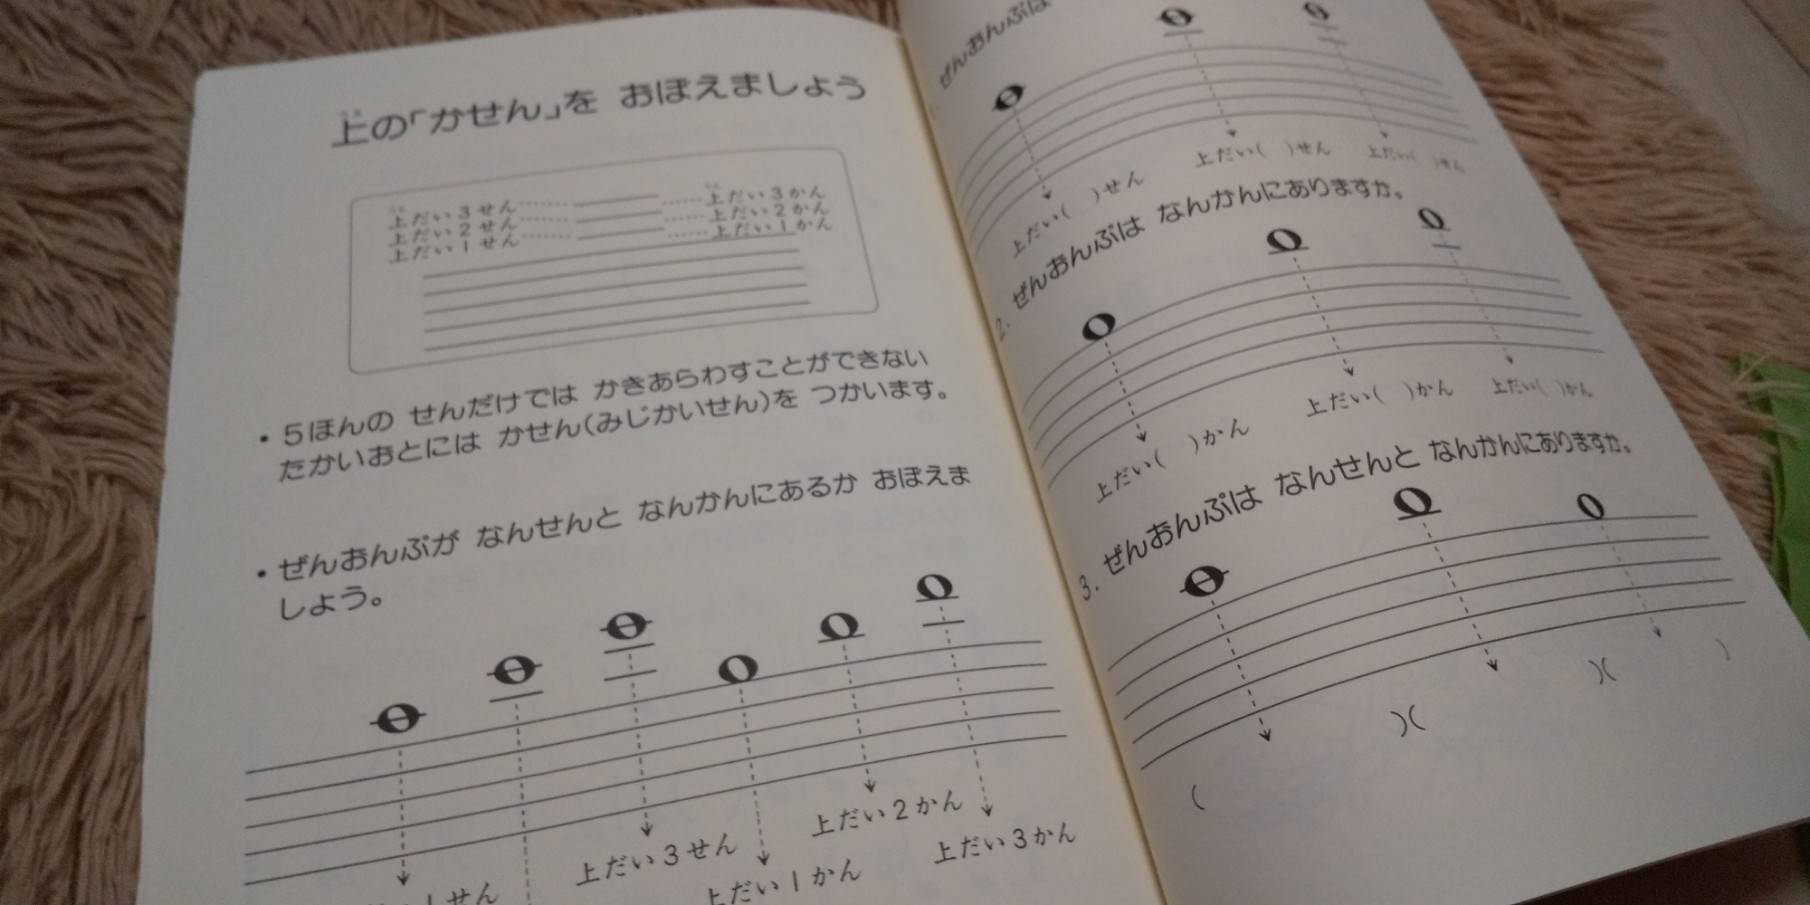 上の「かせん」を おぼえましょう
上だい3せん 上だい3かん
上だい2せん 上だい2かん
上だい1せん 上だい1かん
・5ほんの せんだけでは かきあらわすことができない
たかいおとには かせん(みじかいせん)を つかいます。
・ぜんおんぷが なんせんと なんかんにあるか おぼえま
しょう。
1せん
上だい3せん
上だい1かん
上だい2かん
上だい3かん
1. ぜんおんぷは
上だい( )せん 上だい( )せん 上だい( )せん
2. ぜんおんぷは なんかんにありますか。
上だい( )かん 上だい( )かん 上だい( )かん
3. ぜんおんぷは なんせんと なんかんにありますか。
( )( )( )